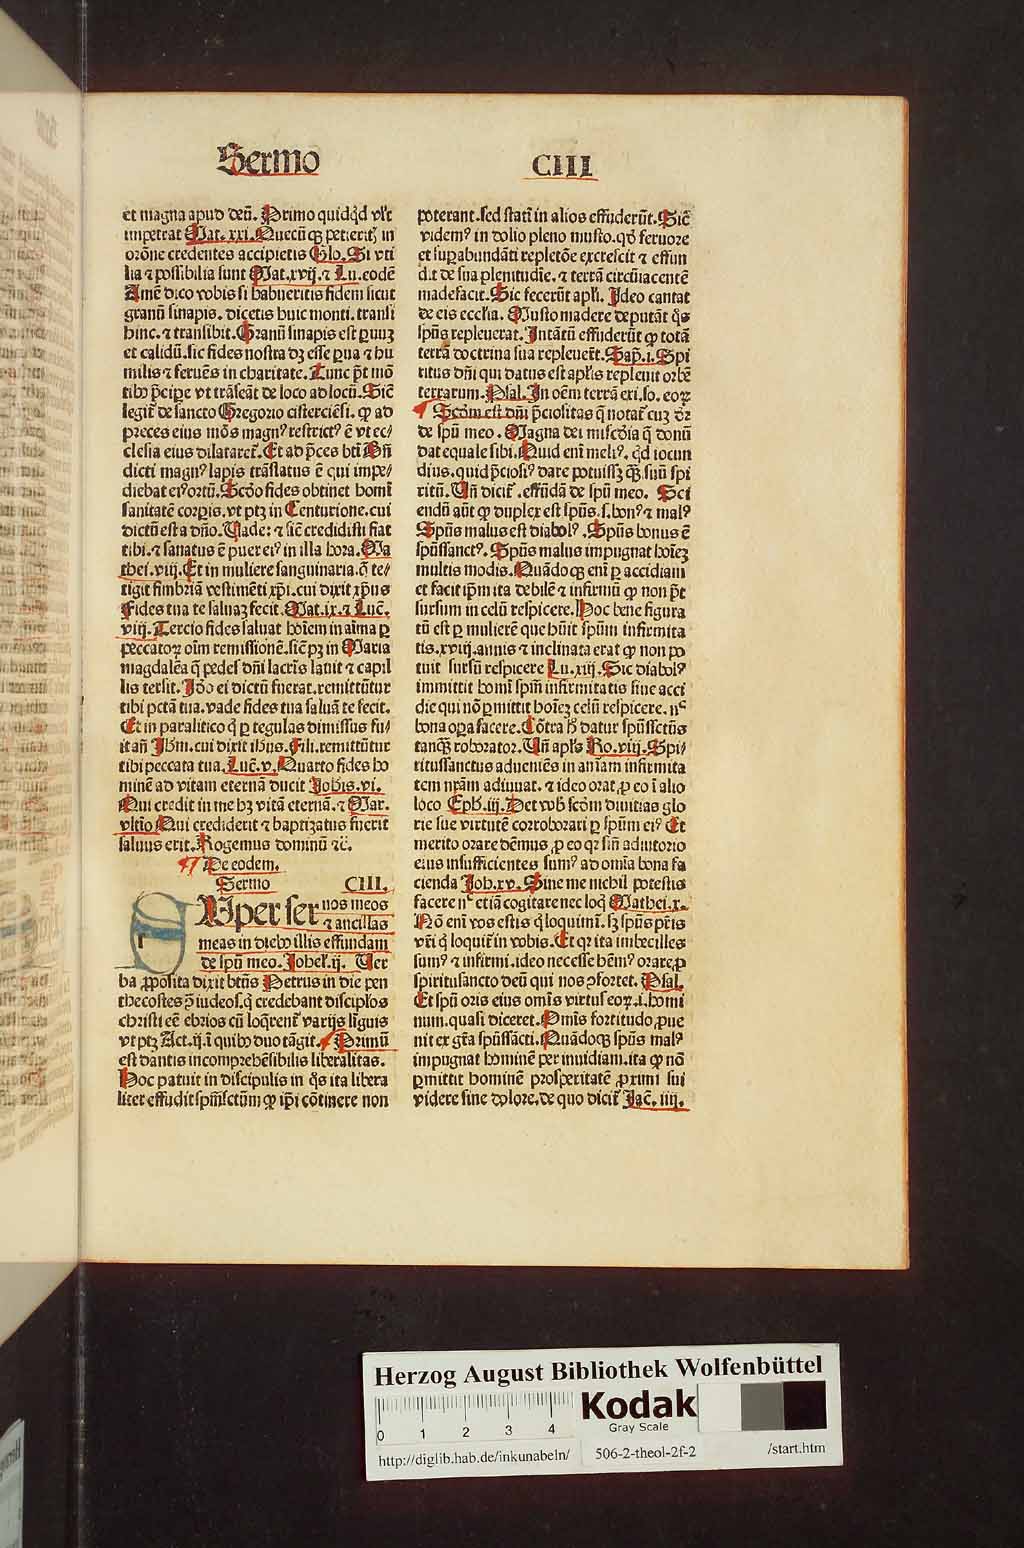 Sermo CIII
et magna apud deū. Primo quidq̄d vl't
impetrat Mat. xxi. Quecū qꝫ petieritꝭ in
orōne credentes accipietis Glo. Si vti
lia ⁊ possibilia sunt Mat.xvij.⁊ Lu.eodē
Amē dico vobis si habueritis fidem sicut
granū sinapis. dicetis huic monti. transi
hinc. ⁊ transibit. Granū sinapis est ꝑuuꝫ
et calidū. sic fides nostra dꝫ esse ꝑua ⁊ hu
milis ⁊ feruēs in charitate. Tunc p̄t mō
tibꝰ p̄cipe vt trāseāt de loco ad locū. Sic̄
legit̄ de sancto Gregorio cisterciēsi. ꝙ ad
preces eius mōs magnꝰ restrictꝰ ē vt ec⸗
clesia eius dilataret̄. Et ad p̄ces bti Bn̄
dicti magnꝰ lapis trāslatus ē qui impe⸗
diebat eiꝰ ortū. Scd̄o fides obtinet homī
sanitatē corꝑis. vt ptꝫ in Centurione. cui
dictū est a dn̄o. Vade: ⁊ sic̄ credidisti fiat
tibi. ⁊ sanatus ē puer eiꝰ in illa hora. Ma
thei. viij. Et in muliere sanguinaria. q̄ te⸗
tigit fimbriā vestimēti xp̄i. cui dixit xp̄us
Fides tua te saluaꝫ fecit. Mat. ix. ⁊ Luc̄.
viij. Tercio fides saluat hoīem in aīma ꝑ
peccatoꝝ oīm remissionē. sic̄ pꝫ in Maria
magdalēa q̄ pedeſ dn̄i lacrīs lauit ⁊ capil
lis tersit. Iō̄o ei dictū fuerat. remittūtur
tibi pctā tua. vade fides tua saluā te fecit.
Et in paralitico q̄ ꝑ tegulas dimissus fu⸗
it an̄ Ihm̄. cui dixit ih̄us. Fili. remittūtur
tibi peccata tua. Luc̄. v. Quarto fides ho
minē ad vitam eternā ducit Ioh̄is. vi.
Qui credit in me hꝫ vitā eternā. ⁊ Mar.
vltīo Qui crediderit ⁊ baptizatus fuerit
saluus erit. Rogemus dominū ⁊c̄.
De eodem.
Sermo CIII.
SUper ser nos meos
⁊ ancillas
meas in diebꝰ illis effundam
de sp̄u meo. Iohel'. ij. Ver
ba ꝓposita dixit btūs Petrus in die pen
thecostes ꝑ iudeos. q̄ credebant discipl'os
christi eē ebrios cū loq̄rent̄ varijs līguis
vt ptꝫ Act. ij. ī quibꝰ duo tāgit. Primū
est dantis incomprehēsibilis liberalitas.
Hoc patuit in discipulis in q̄s ita libera
liter effudit sp̄m sctūm ꝙ ip̄i cōtinere non
poterant. sed statī in alios effuderūt. Sic̄
videmꝰ in dolio pleno musto. qd̄ feruore
et suꝑabundāti repletōe excrescit ⁊ effun
dit de sua plenitudīe. ⁊ terrā circūiacentē
madefacit. Sic fecerūt apl'i. Ideo cantat
de eis eccl'ia. Musto madere deputāt q̄s
sp̄us repleuerat. Intātū effuderūt ꝙ totā
terrā doctrina sua repleuer̄t. Sap̄. i. Spi
ritus dn̄i qui datus est apl'is repleuit orbē
terrarum. Psal. In oēm terrā exi. so. eoꝝ
Scd̄m est dn̄i p̄ciositas q̄ notat̄ cuꝫ dr̄
de sp̄u meo. Magna dei misc̄dia q̄ donū
dat equale sibi. Quid enī meliꝰ. qd̄ iocun
dius. quid p̄ciosiꝰ dare potuiss̄ꝫ qꝫ suū spi
ritū. Un̄ dicit̄. effūdā de sp̄u meo. Sci
endū aūt ꝙ duplex est sp̄us. s. bonꝰ ⁊ malꝰ
Sp̄us malus est diabolꝰ. Sp̄us bonus ē
sp̄ussanctꝰ. Sp̄us malus impugnat hoīeꝫ
multis modis. Quādoqꝫ enī ꝑ accidiam
et facit ip̄m ita debilē ⁊ infirmū ꝙ non p̄t
sursum in celū respicere. Hoc bene figura
tū est ꝑ mulierē que hūit sp̄um infirmita
tis. xviij. annis ⁊ inclinata erat ꝙ non po
tuit sursū respicere Lu. xiij. Sic diabolꝰ
immittit homī sp̄m infirmitatis siue acci
die qui nō ꝑmittit hoīeꝫ celū respicere. nͨ
bona oꝑa facere. Cōtra hͦ datur sp̄ussctūs
tanqꝫ roborator. Un̄ apl's Ro. viij. Spi⸗
ritussanctus adueniēs in aīam infirmita
tem nr̄am adiuuat. ⁊ ideo orat ꝓ eo ī alio
loco Eph. iij. Det vob̄ scd̄m diuitias glo
rie sue virtutē corroborari ꝑ sp̄um eiꝰ Et
merito orare dēmus ꝓ eo qꝛ sin̄ adiutorio
eius insufficientes sumꝰ ad omīa bona fa
cienda Ioh. xv. Sine me nichil potestis
facere nͨ etiā cogitare nec loq̄ Mathei. x.
Nō enī vos estis q̄ loquimī. sꝫ sp̄us pr̄is
vr̄i q̄ loquit̄ in vobis. Et qꝛ ita imbecilles
sumꝰ ⁊ infirmi. ideo necesse hēmꝰ orare, ꝓ
spiritusancto deū qui nos ꝯfortet. Psal.
Et sp̄u oris eius omīs virtus eoꝝ. i. homi
num. quasi diceret. Om̄is fortitudo ꝓue
nit ex gr̄a sp̄ussācti. Quādoqꝫ sp̄us malꝰ
impugnat hominē per inuidiam. ita ꝙ nō
ꝑmittit hominē prosperitatē ꝓximi sui
videre sine dolore. de quo dicit̄ Iac̄. iiij.
Herzog August Bibliothek Wolfenbüttel
0 1 2 3 4
Kodak
Gray Scale
http://diglib.hab.de/inkunabeln/ 506-2-theol-2f-2 /start.htm